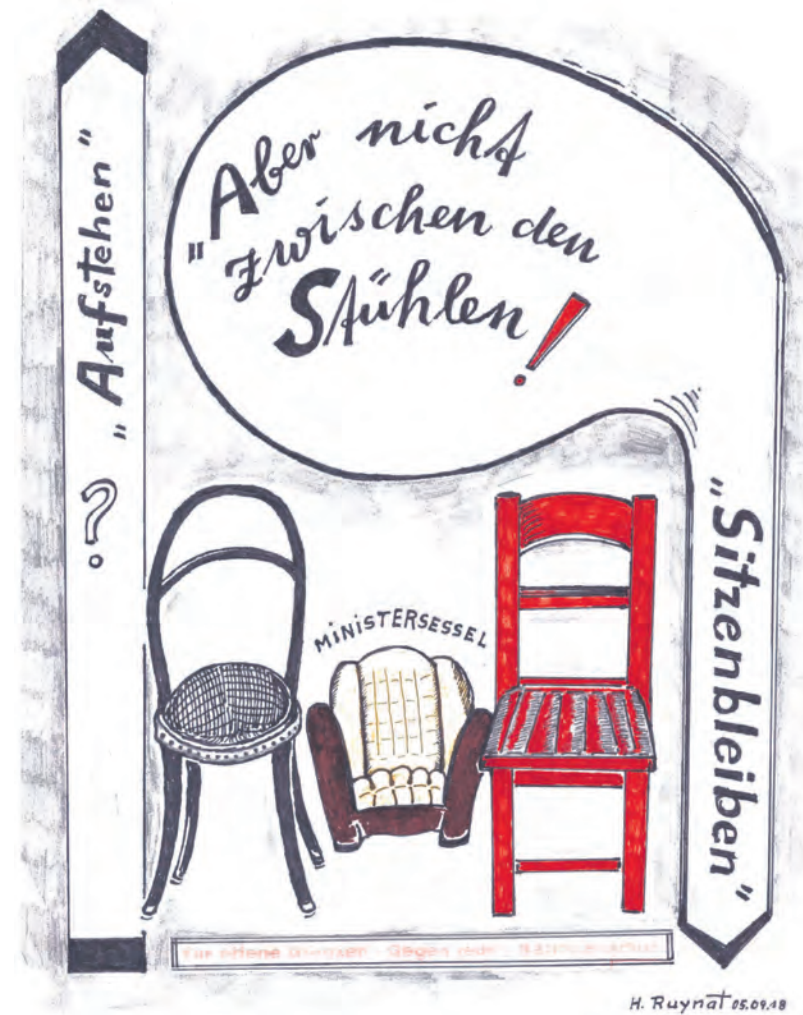 ? „Aufstehen"
„Aber nicht
zwischen den
Stühlen!
„Sitzenbleiben"
MINISTERSESSEL
Für offene Grenzen - Gegen
H. Ruynat 05.09.18